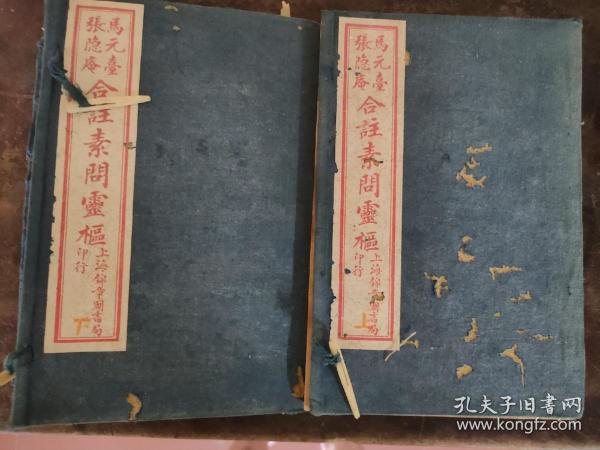 馬元臺
張隐庵
合註素問靈樞
上海錦章圖書局
印行
上
馬元臺
張隐庵
合註素問靈樞
上海錦章圖書局
印行
下
孔夫子旧书网
www.kongfz.com